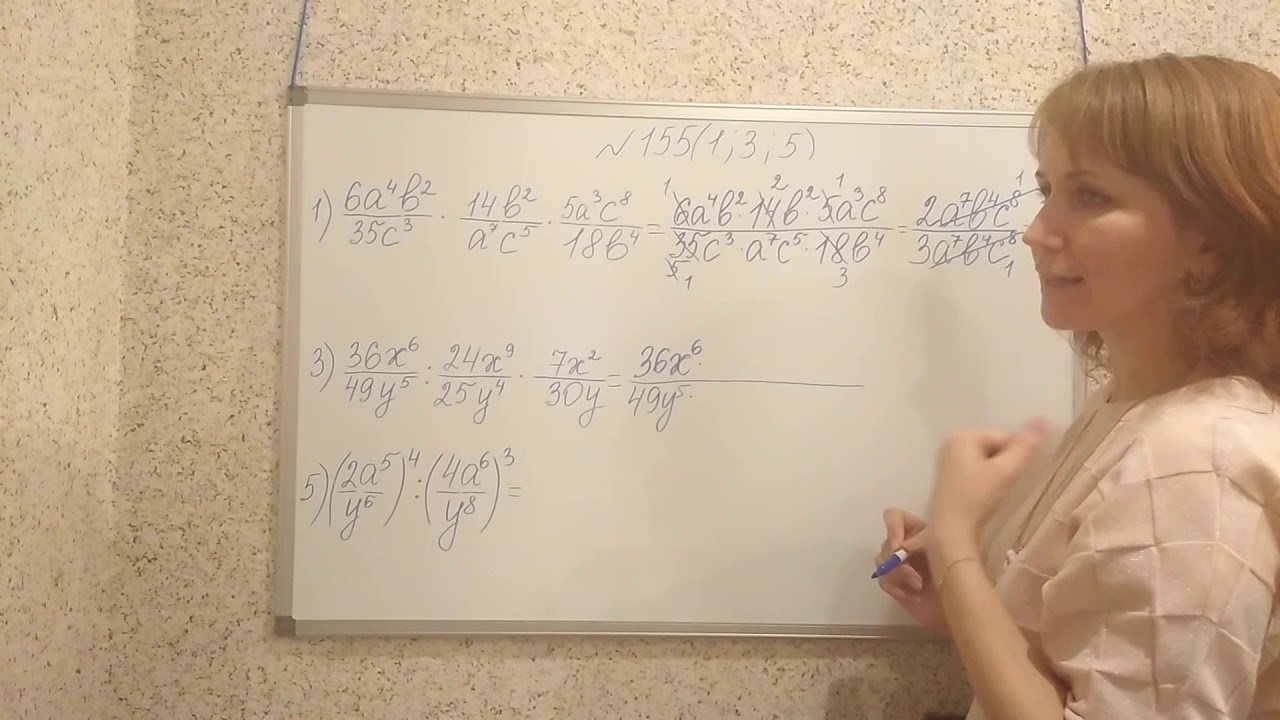 №155(1; 3; 5)
1) 6a⁴b²/35c³ · 14b²/a⁷c⁵ · 5a³c⁸/18b⁴ = 6a⁴b²·14b²·5a³c⁸/35c³·a⁷c⁵·18b⁴ = 2a⁷b⁴c⁸/3a⁷b⁴c⁸
3) 36x⁶/49y⁵ : 24x⁹/25y⁴ · 7x²/30y = 36x⁶·/49y⁵·
5) (2a⁵/y⁶)⁴ : (4a⁶/y⁸)³ =